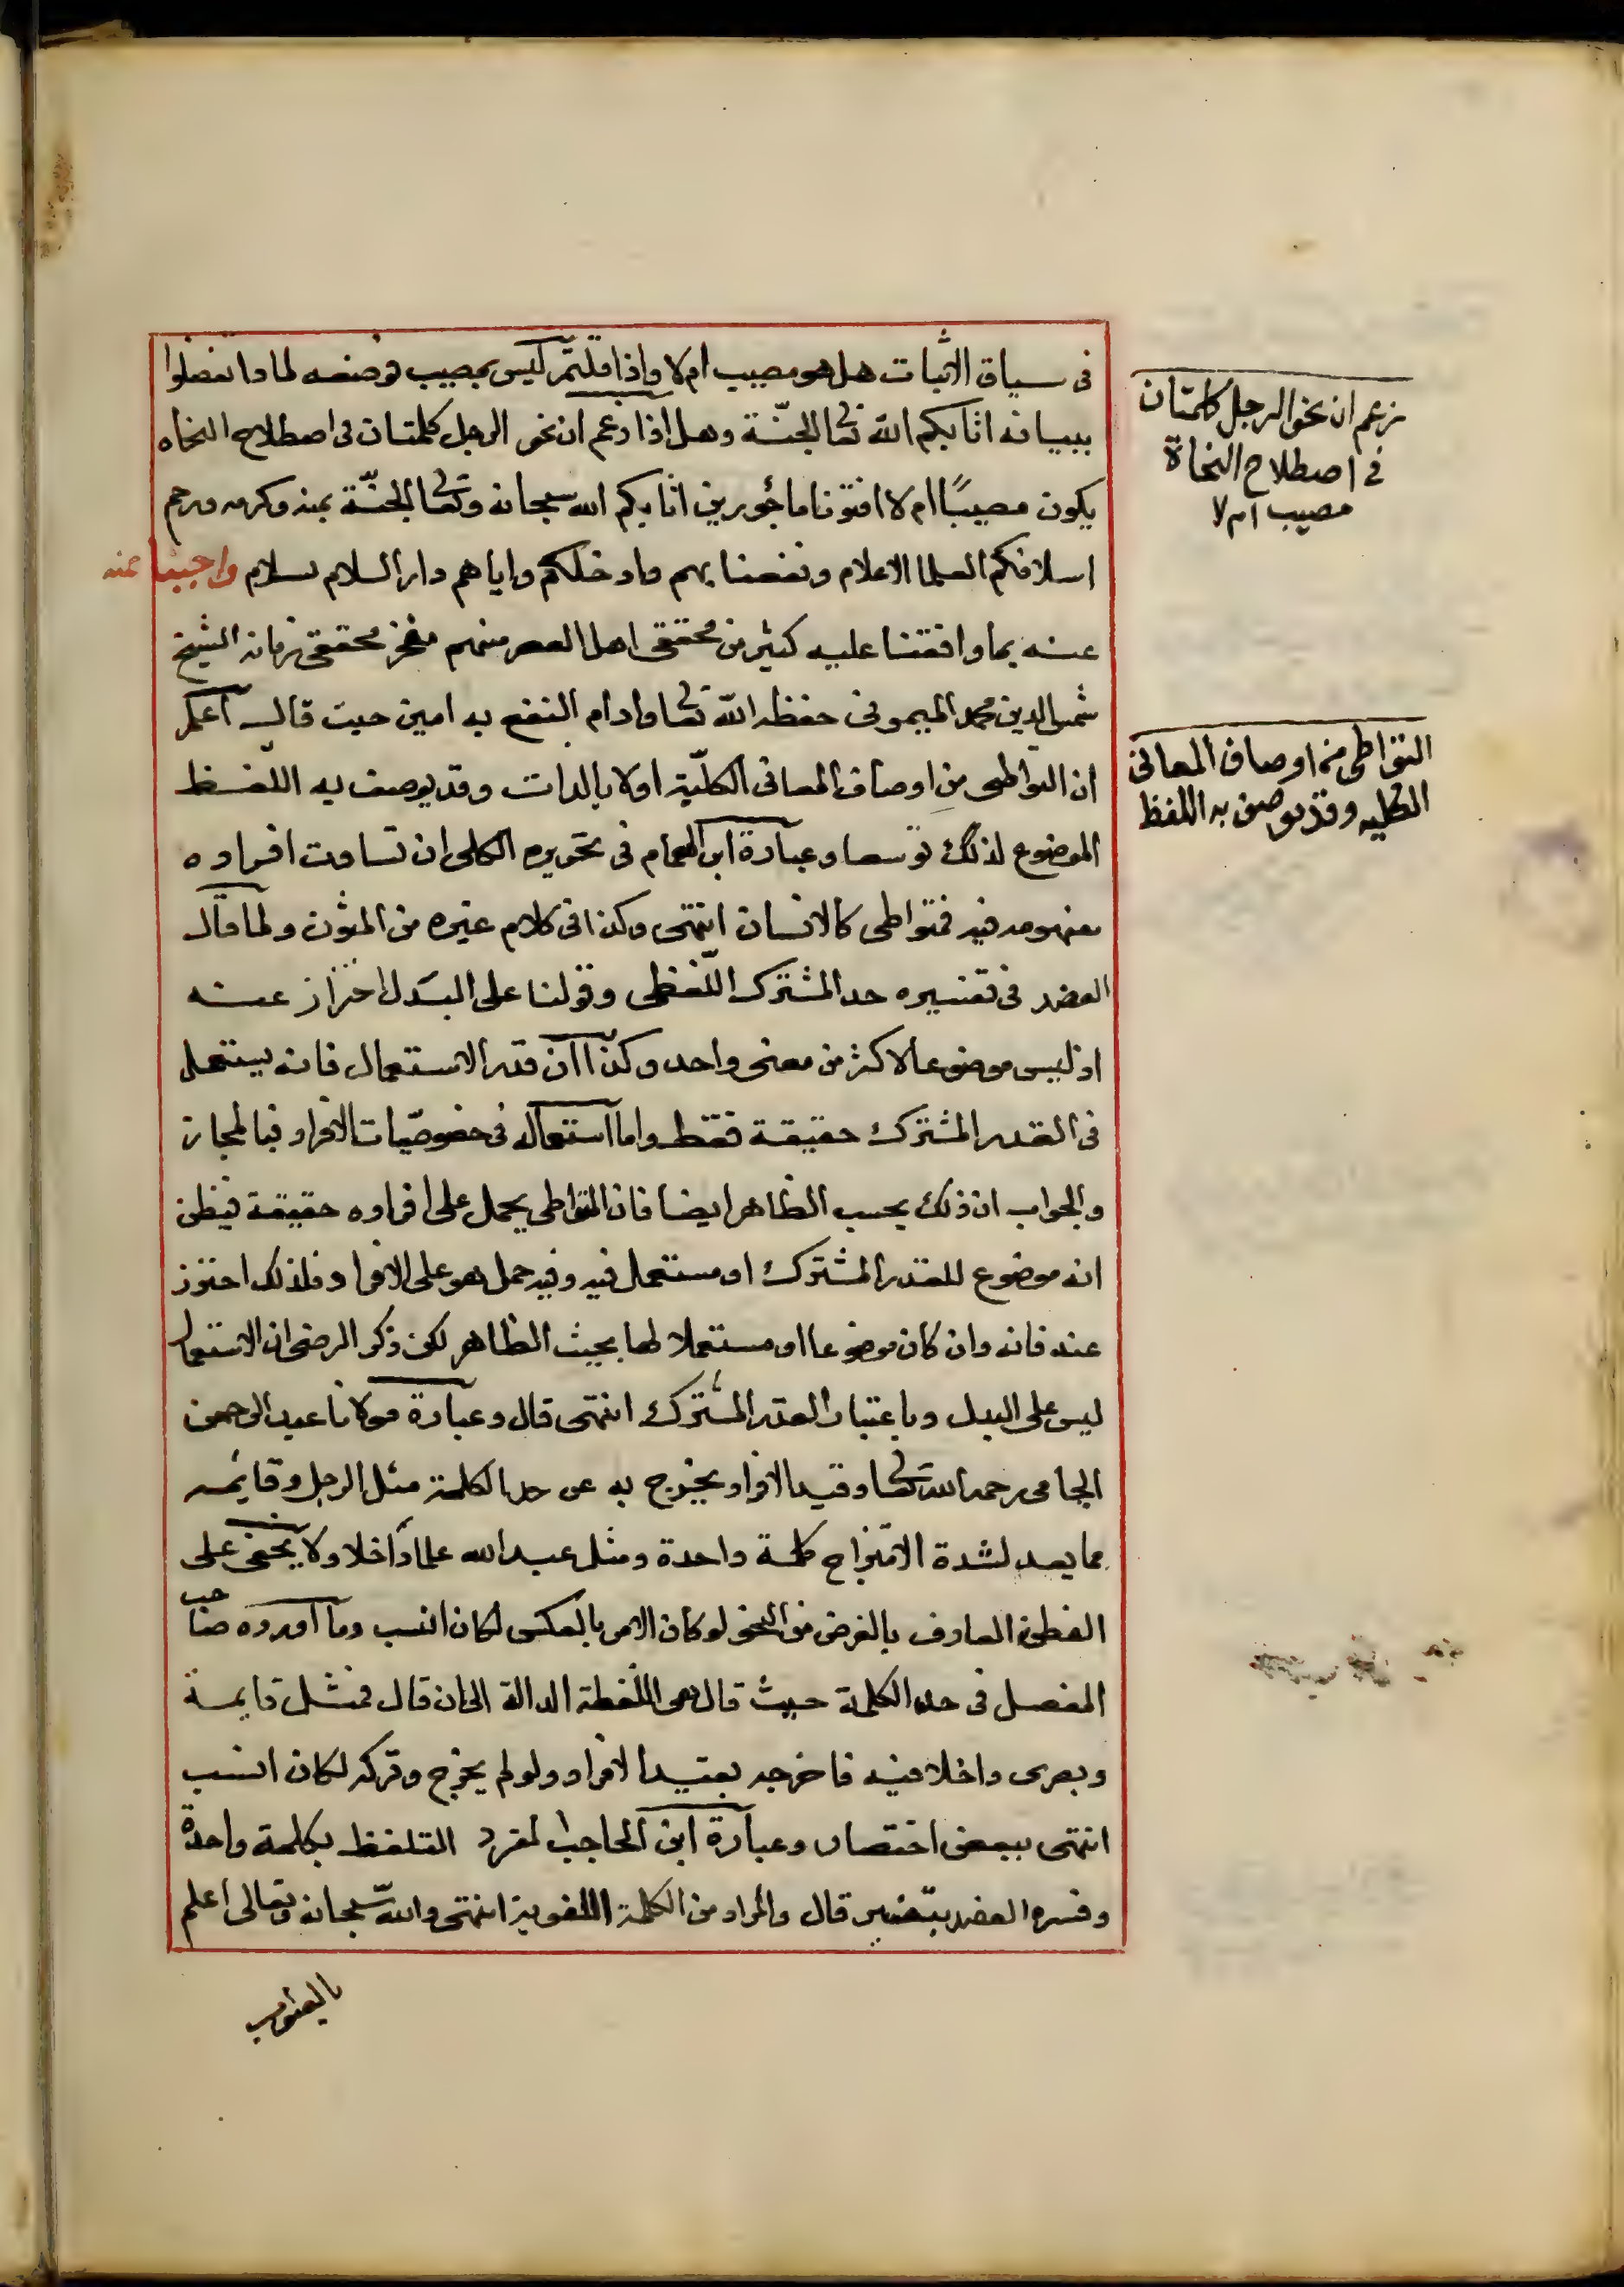 في سياق الاثبات هل هو مصيب ام لا واذا قلتم ليس بمصيب توضحه لماذا تفضلوا
ببيانه اثابكم الله تعالى الجنّة وهل اذا زعم ان نحو الرجل كلمتان في اصطلاح النحاه
يكون مصيبًا ام لا افتونا مأجورين اثابكم الله سبحانه وتعالى الجنّة بمنه وكرمه ورحم
اسلافكم العلما الاعلام ونفعنا بهم وادخلكم واياهم دار السلام بسلام واجبنا عنه
عنه بما وافقنا عليه كثير من محققي اهل العصر منهم مفخر محققي زمانه الشيخ
شمس الدين محمد الميموني حفظه الله تعالى وادام النفع به امين حيث قال اعلم
ان التواطى من اوصاف المعاني الكليّة اولا بالذات وقد يوصف به اللفظ
الموضوع لذلك توسعا وعبارة ابن الهمام في تحريره الكلي ان تساوت افراده
مفهومه فيه فمتواطي كالانسان انتهى وكذا في كلام غيره من المتون ولما قال
العضد في تفسيره حد المشترك اللّفظي وقولنا على البدل احتراز عنه
اذ ليس موضوعا لاكثر من معنى واحد وكذا ان قدر الاستعمال فانه يستعمل
في القدر المشترك حقيقة فقط واما استعماله في خصوصيّات الافراد فبالمجاز
والجواب ان ذلك بحسب الظاهر ايضا فان المتواطي يحمل على افراده حقيقة فيظن
انه موضوع للقدر المشترك او مستعمل فيه وفيه حمل هو على الافراد فلذلك احترز
عنه فانه وان كان موضوعا او مستعملا لها بحيث الظاهر لكن ذكر الرضى ان الاستعمال
ليس على البدل وباعتبار القدر المشترك انتهى قال وعبارة مولانا عبد الرحمن
الجامي رحمه الله تعالى وقيد الافراد يخرج به عن حد الكلمة مثل الرجل وقائمه
مما يعد لشدة الامتزاج كلمة واحدة ومثل عبد الله علما داخلا ولا يخفى على
الفطن العارف بالغرض من النحو لو كان الامر بالعكس لكان انسب وما اورده صاحب
المفصل في حد الكلمة حيث قال هي اللّفظة الدالة الى ان قال فمثل قايمة
وبصرى داخلا فيه فاخرجه بقيد الافراد ولو لم يخرج وتركه لكان انسب
انتهى ببعض اختصار وعبارة ابن الحاجب المفرد التلفظ بكلمة واحدة
وفسره العضد بتفسير قال والمراد من الكلمة اللغوية انتهى والله سبحانه وتعالى اعلم
زعم ان نحو الرجل كلمتان
في اصطلاح النحاة
مصيب ام لا
التواطى من اوصاف المعاني
الكليه وقد يوصف به اللفظ